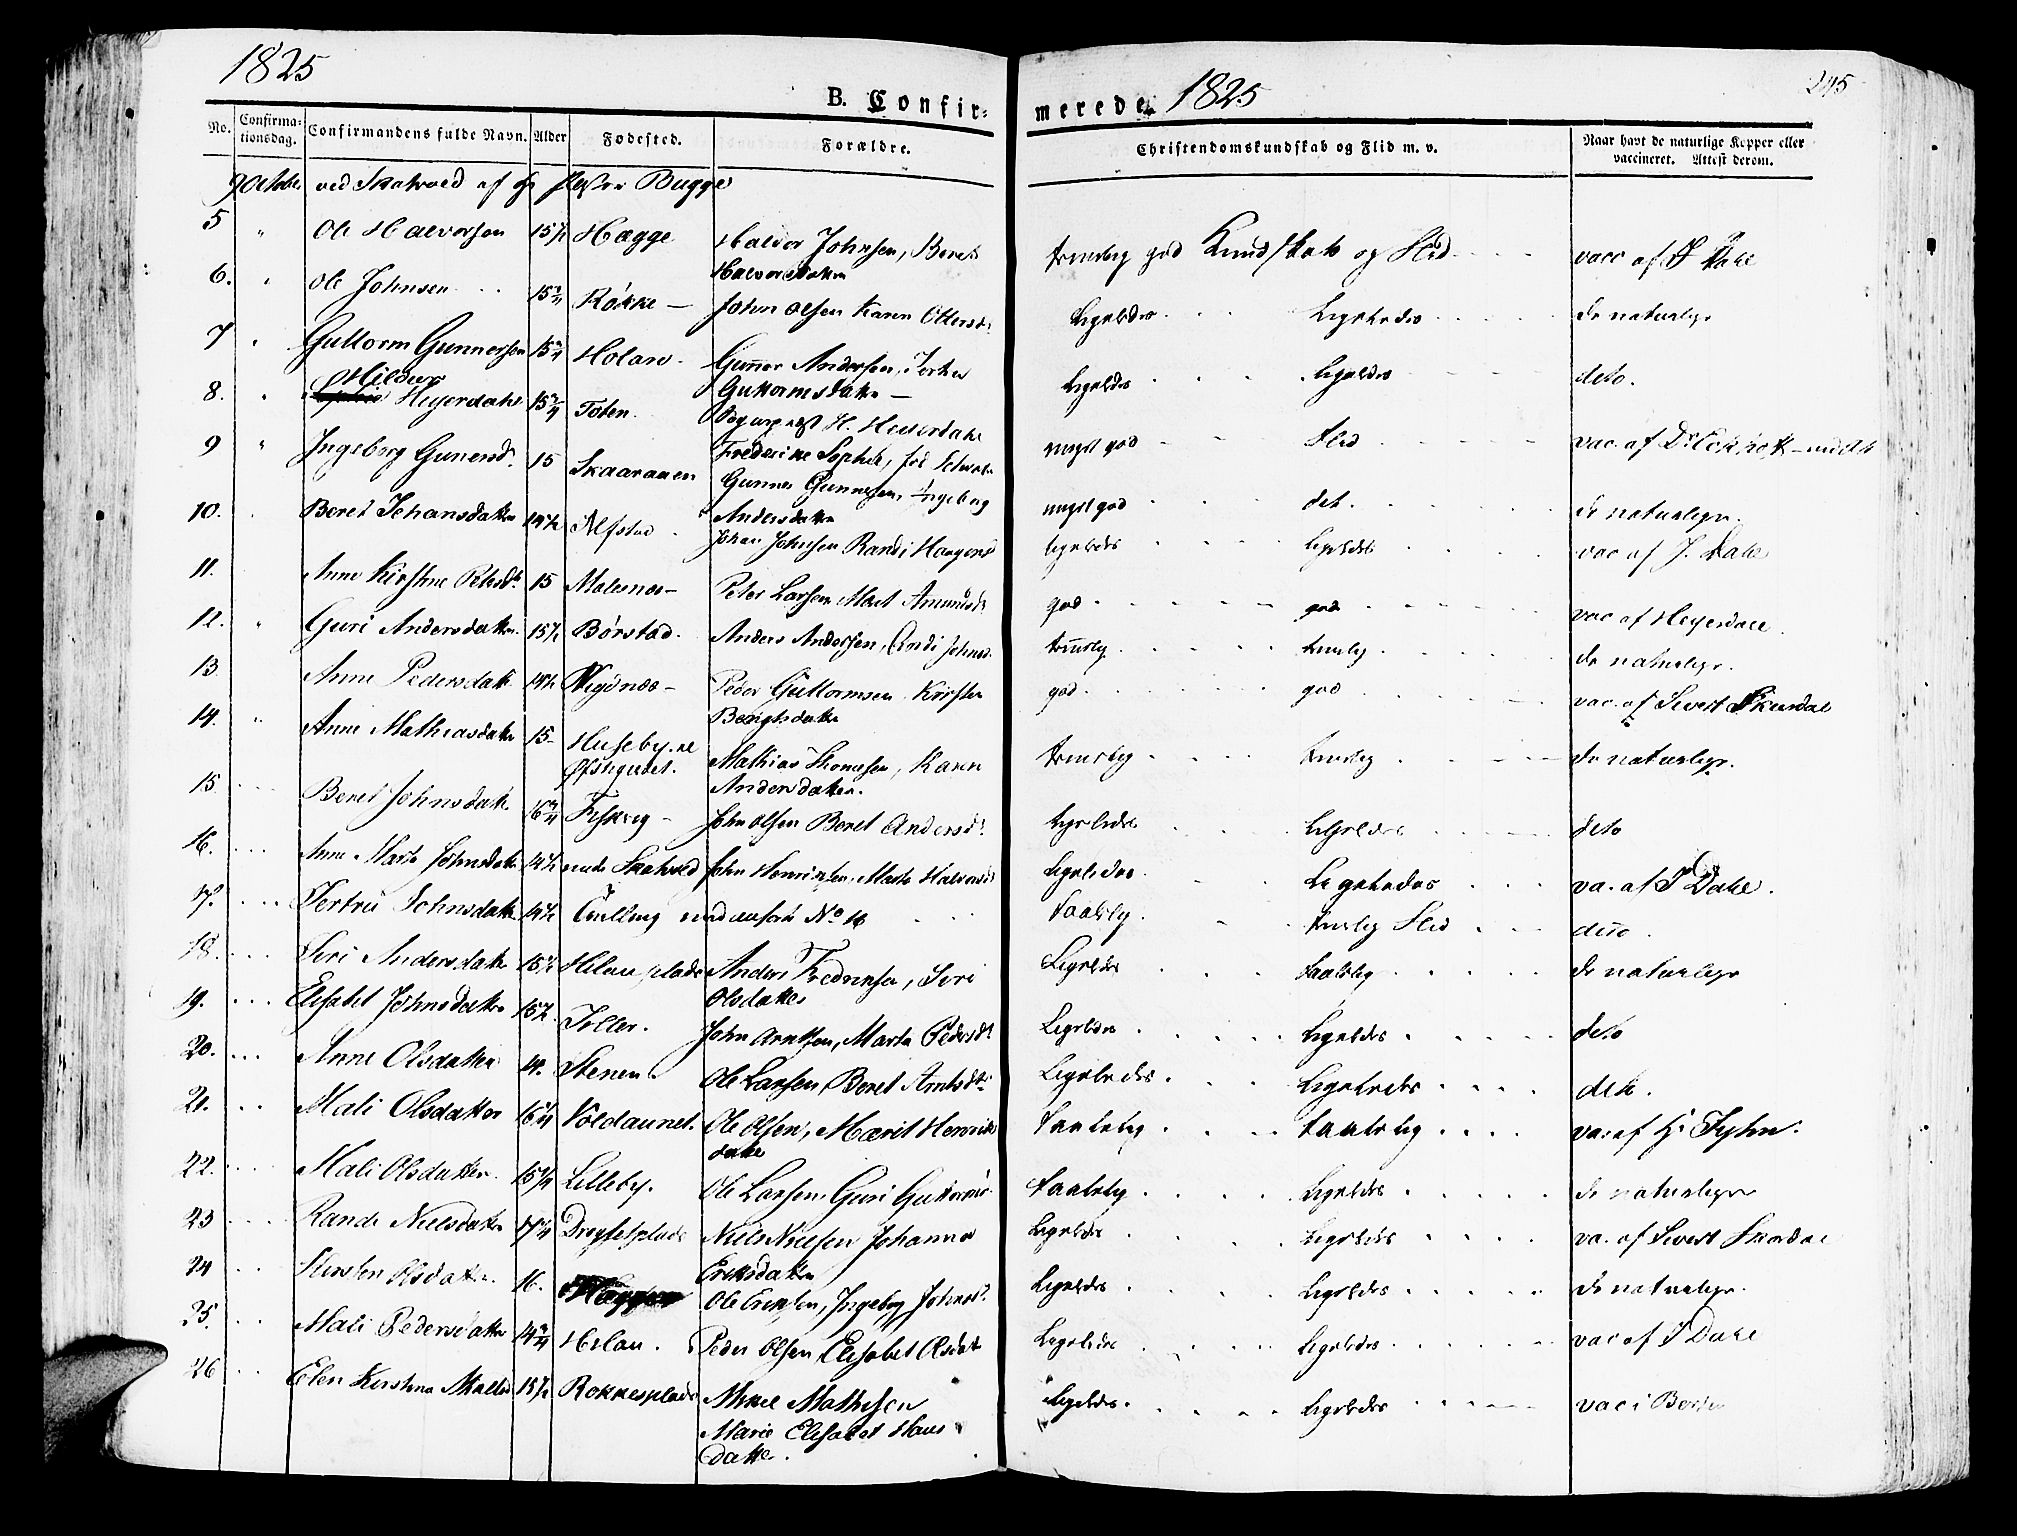 1825
B. Confir-
merede 1825
245
No.
Confirma-
tionsdag.
Confirmandens fulde Navn.
Alder
Fødested.
Forældre.
Christendomskundskab og Flid m. v.
Naar havt de naturlige Kopper eller
vaccineret. Attest derom.
9 October ved Skatvold af Hr Bugge
5 " Ole Halvorsen 15½ Hægge Halvor Johnsen, Beret
Halvorsdatter temelig god Kundskab og Flid vacc af J Dahl
6. " Ole Johnsen 15¾ Røkke John Olsen Karen Ottersd: Ligeledes Ligeledes de naturlige
7 " Guttorm Gunnersen 15¾ Holan Gunner Andersen,
Guttormsdatter Ligeledes Ligeledes deto.
8. " Hildur Heyerdahl 15¾ Toten. H. Heierdahl
Frederikke Sophie, meget god Flid vac. af Dr
9 " Ingeborg Gunersd. 15 Skaaraaen Gunner Gunnersen, Ingeborg
Andersdatter meget god det. de naturlige.
10. Beret Johansdatter 14½ Alstad Johan Johnsen Randi Haagensd ligeledes ligeledes vac af J. Dahl
11. Anne Kirstine Petersdt. 15 Malesnæs Peter Larsen Marit Amundsd: god god vac af Heyerdahl
12. " Guri Andersdatter 15½ Børstad. Anders Andersen, Johnsd. temelig temelig de naturlige.
13 Anne Pedersdatter 14½ Vigdnæs Peder Guttormsen Kirsten
Bengtsdatter god god vac. af Sivert Skurdal
14. " Anne Mathiasdatter 15 Huseby
Øfstigerdet. Mathias Thomesen, Karen
Andersdatter. temelig temelig de naturlige.
15. Beret Johnsdatter 16¾ Fiskvig John Olsen Beret Andersd: ligeledes ligeledes deto
16. Anne Marta Johnsdatter 14½ Skatvold John Henriksen, Marta Halvorsd Ligeledes Ligeledes va. af J Dahl.
17. Johnsdatter 14½ No 16 Taalelig temelig Flid dito.
18. Siri Andersdatter 15½ Hilan plads Anders Fredriksen, Siri
Olsdatter Ligeledes taalelig de naturlige
19. Elisabet Johnsdatter 15½ Teller. John Arntsen, Marta Pedersdt Ligeledes Ligeledes deto
20. Anne Olsdatter 14. Stenen. Ole Larsen, Beret Arntsdtr Ligeledes Ligeledes deto.
21. Mali Olsdatter 16¼ Voldaunet. Ole Olsen, Marit Henriks
datter Taalelig taalelig va. af Hr Tyhn.
22. Mali Olsdatter 15¼ Lilleby. Ole Larsen, Guri Guttormsd. Taalelig Ligeledes de naturlige
23 Randi Nielsdatter 17¼ Dreyfelplads Niels Nielsen Johanna
Eriksdatter Ligeledes Ligeledes va. af Sivert Skurdal
24 Kirsten Olsdatter. 16. Ole Eriksen, Ingeborg Johnsd. Ligeledes Ligeledes de naturlige.
25. Mali Pedersdatter 14¾ Hilan. Peder Olsen, Elisabet Olsdat Ligeledes Ligeledes vac af J Dahl
26 Elen Kirstina 15½ Rokkesplads Mikel Mathisen
Marie Elisabet Hans
Datter. Ligeledes. Ligeledes vac i